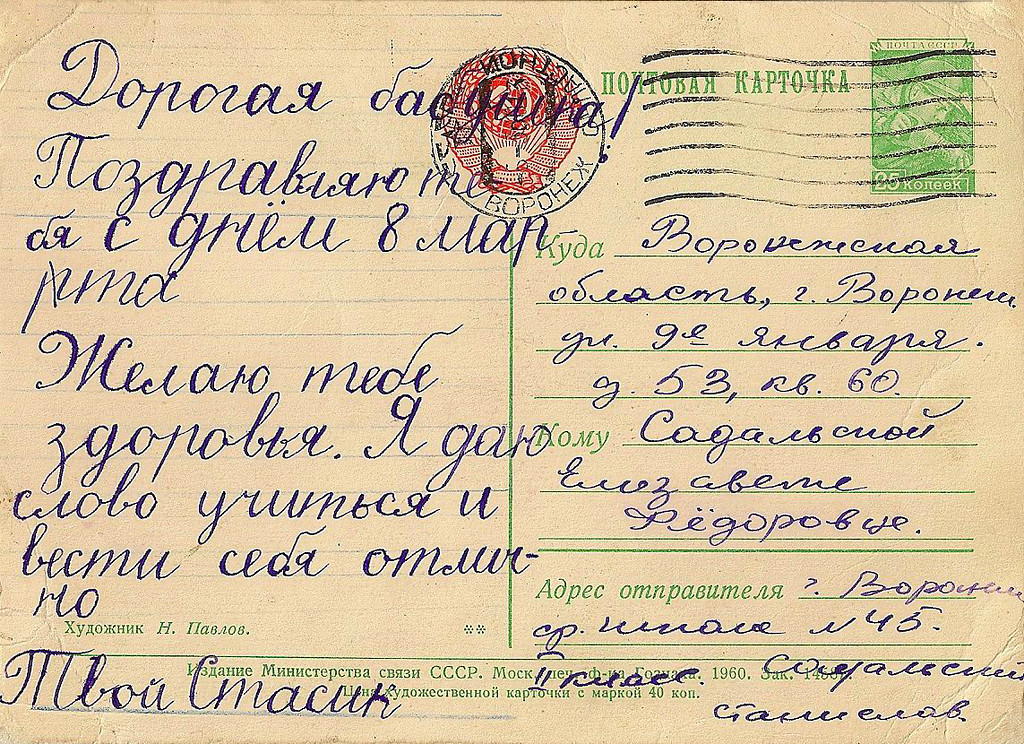 Дорогая бабушка!
Поздравляю те-
бя с днём 8 мар-
та
Желаю тебе
здоровья. Я даю
слово учиться и
вести себя отлич-
но
Художник Н. Павлов.
**
Твой Стасик
ВОРОНЕЖ
ПОЧТОВАЯ КАРТОЧКА
ПОЧТА СССР
25 копеек
Куда Воронежская
область, г. Воронеж.
ул. 9е января.
д. 53, кв. 60.
Кому Садальской
Елизавете
Фёдоровне.
Адрес отправителя г. Воронеж
ср. школа N 45.
II класс. Садальский
Станислав.
Издание Министерства связи СССР. Моск. печ. ф-ка Гознака. 1960. Зак.
Цена художественной карточки с маркой 40 коп.